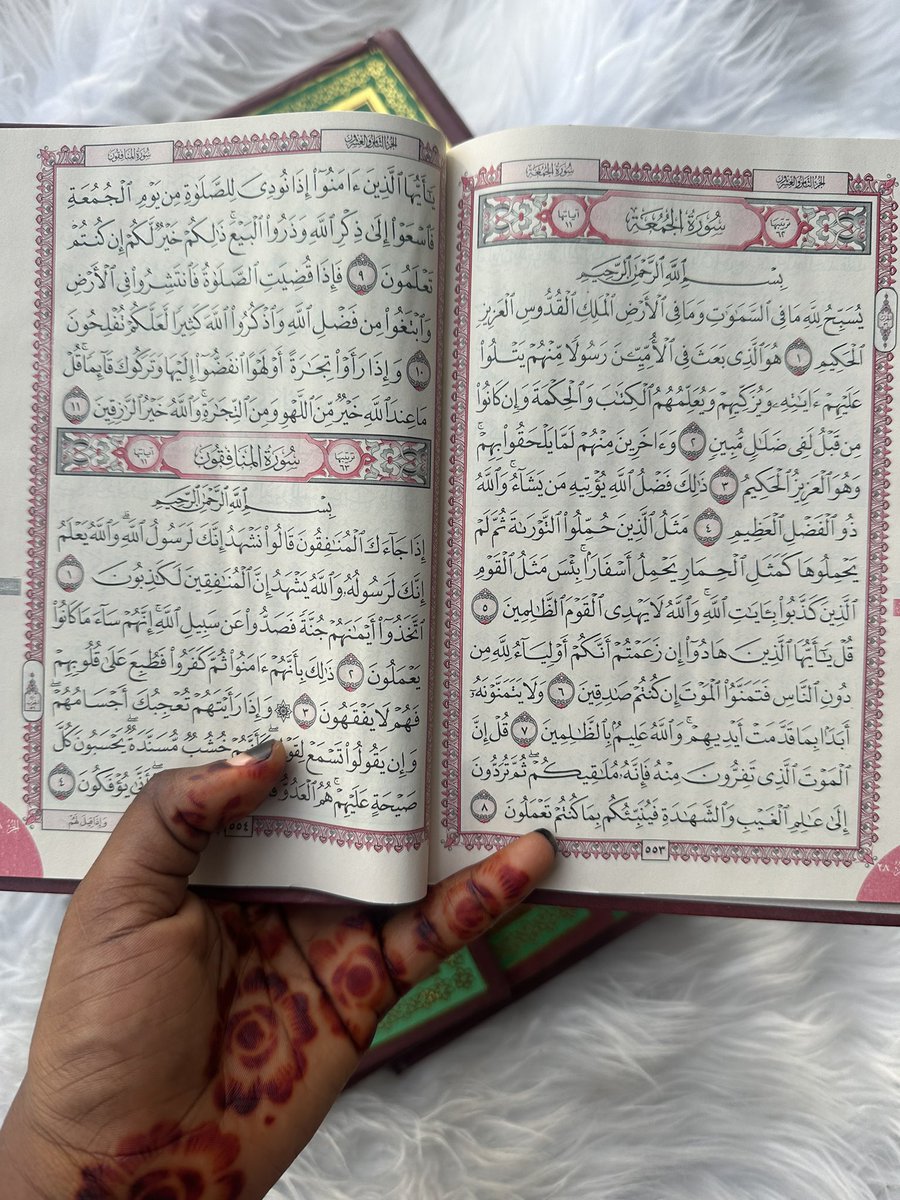 الجزء الثامن والعشرون سورة الجمعة
ترتيبها ٦٢ سُورَةُ الجُمُعَة آياتها ١١
بِسْمِ ٱللَّهِ ٱلرَّحْمَٰنِ ٱلرَّحِيمِ
يُسَبِّحُ لِلَّهِ مَا فِى ٱلسَّمَٰوَٰتِ وَمَا فِى ٱلْأَرْضِ ٱلْمَلِكِ ٱلْقُدُّوسِ ٱلْعَزِيزِ
ٱلْحَكِيمِ ١ هُوَ ٱلَّذِى بَعَثَ فِى ٱلْأُمِّيِّـۧنَ رَسُولًا مِّنْهُمْ يَتْلُوا۟
عَلَيْهِمْ ءَايَٰتِهِۦ وَيُزَكِّيهِمْ وَيُعَلِّمُهُمُ ٱلْكِتَٰبَ وَٱلْحِكْمَةَ وَإِن كَانُوا۟
مِن قَبْلُ لَفِى ضَلَٰلٍ مُّبِينٍ ٢ وَءَاخَرِينَ مِنْهُمْ لَمَّا يَلْحَقُوا۟ بِهِمْ ۚ
وَهُوَ ٱلْعَزِيزُ ٱلْحَكِيمُ ٣ ذَٰلِكَ فَضْلُ ٱللَّهِ يُؤْتِيهِ مَن يَشَآءُ ۚ وَٱللَّهُ
ذُو ٱلْفَضْلِ ٱلْعَظِيمِ ٤ مَثَلُ ٱلَّذِينَ حُمِّلُوا۟ ٱلتَّوْرَىٰةَ ثُمَّ لَمْ
يَحْمِلُوهَا كَمَثَلِ ٱلْحِمَارِ يَحْمِلُ أَسْفَارًۢا ۚ بِئْسَ مَثَلُ ٱلْقَوْمِ
ٱلَّذِينَ كَذَّبُوا۟ بِـَٔايَٰتِ ٱللَّهِ ۚ وَٱللَّهُ لَا يَهْدِى ٱلْقَوْمَ ٱلظَّٰلِمِينَ ٥
قُلْ يَٰٓأَيُّهَا ٱلَّذِينَ هَادُوٓا۟ إِن زَعَمْتُمْ أَنَّكُمْ أَوْلِيَآءُ لِلَّهِ مِن
دُونِ ٱلنَّاسِ فَتَمَنَّوُا۟ ٱلْمَوْتَ إِن كُنتُمْ صَٰدِقِينَ ٦ وَلَا يَتَمَنَّوْنَهُۥٓ
أَبَدًۢا بِمَا قَدَّمَتْ أَيْدِيهِمْ ۚ وَٱللَّهُ عَلِيمٌۢ بِٱلظَّٰلِمِينَ ٧ قُلْ إِنَّ
ٱلْمَوْتَ ٱلَّذِى تَفِرُّونَ مِنْهُ فَإِنَّهُۥ مُلَٰقِيكُمْ ۖ ثُمَّ تُرَدُّونَ
إِلَىٰ عَٰلِمِ ٱلْغَيْبِ وَٱلشَّهَٰدَةِ فَيُنَبِّئُكُم بِمَا كُنتُمْ تَعْمَلُونَ ٨
٥٥٣
الجزء الثامن والعشرون سورة المنافقون
يَٰٓأَيُّهَا ٱلَّذِينَ ءَامَنُوٓا۟ إِذَا نُودِىَ لِلصَّلَوٰةِ مِن يَوْمِ ٱلْجُمُعَةِ
فَٱسْعَوْا۟ إِلَىٰ ذِكْرِ ٱللَّهِ وَذَرُوا۟ ٱلْبَيْعَ ۚ ذَٰلِكُمْ خَيْرٌ لَّكُمْ إِن كُنتُمْ
تَعْلَمُونَ ٩ فَإِذَا قُضِيَتِ ٱلصَّلَوٰةُ فَٱنتَشِرُوا۟ فِى ٱلْأَرْضِ
وَٱبْتَغُوا۟ مِن فَضْلِ ٱللَّهِ وَٱذْكُرُوا۟ ٱللَّهَ كَثِيرًا لَّعَلَّكُمْ تُفْلِحُونَ
١٠ وَإِذَا رَأَوْا۟ تِجَٰرَةً أَوْ لَهْوًا ٱنفَضُّوٓا۟ إِلَيْهَا وَتَرَكُوكَ قَآئِمًا ۚ قُلْ
مَا عِندَ ٱللَّهِ خَيْرٌ مِّنَ ٱللَّهْوِ وَمِنَ ٱلتِّجَٰرَةِ ۚ وَٱللَّهُ خَيْرُ ٱلرَّٰزِقِينَ ١١
ترتيبها ٦٣ سُورَةُ المُنَافِقُون آياتها ١١
بِسْمِ ٱللَّهِ ٱلرَّحْمَٰنِ ٱلرَّحِيمِ
إِذَا جَآءَكَ ٱلْمُنَٰفِقُونَ قَالُوا۟ نَشْهَدُ إِنَّكَ لَرَسُولُ ٱللَّهِ ۗ وَٱللَّهُ يَعْلَمُ
إِنَّكَ لَرَسُولُهُۥ وَٱللَّهُ يَشْهَدُ إِنَّ ٱلْمُنَٰفِقِينَ لَكَٰذِبُونَ ١
ٱتَّخَذُوٓا۟ أَيْمَٰنَهُمْ جُنَّةً فَصَدُّوا۟ عَن سَبِيلِ ٱللَّهِ ۚ إِنَّهُمْ سَآءَ مَا كَانُوا۟
يَعْمَلُونَ ٢ ذَٰلِكَ بِأَنَّهُمْ ءَامَنُوا۟ ثُمَّ كَفَرُوا۟ فَطُبِعَ عَلَىٰ قُلُوبِهِمْ
فَهُمْ لَا يَفْقَهُونَ ٣ ۞ وَإِذَا رَأَيْتَهُمْ تُعْجِبُكَ أَجْسَامُهُمْ ۖ
وَإِن يَقُولُوا۟ تَسْمَعْ كَأَنَّهُمْ خُشُبٌ مُّسَنَّدَةٌ ۖ يَحْسَبُونَ كُلَّ
صَيْحَةٍ عَلَيْهِمْ ۚ هُمُ ٱلْعَدُوُّ أَنَّىٰ يُؤْفَكُونَ ٤
وَإِذَا قِيلَ لَهُمْ
٥٥٤